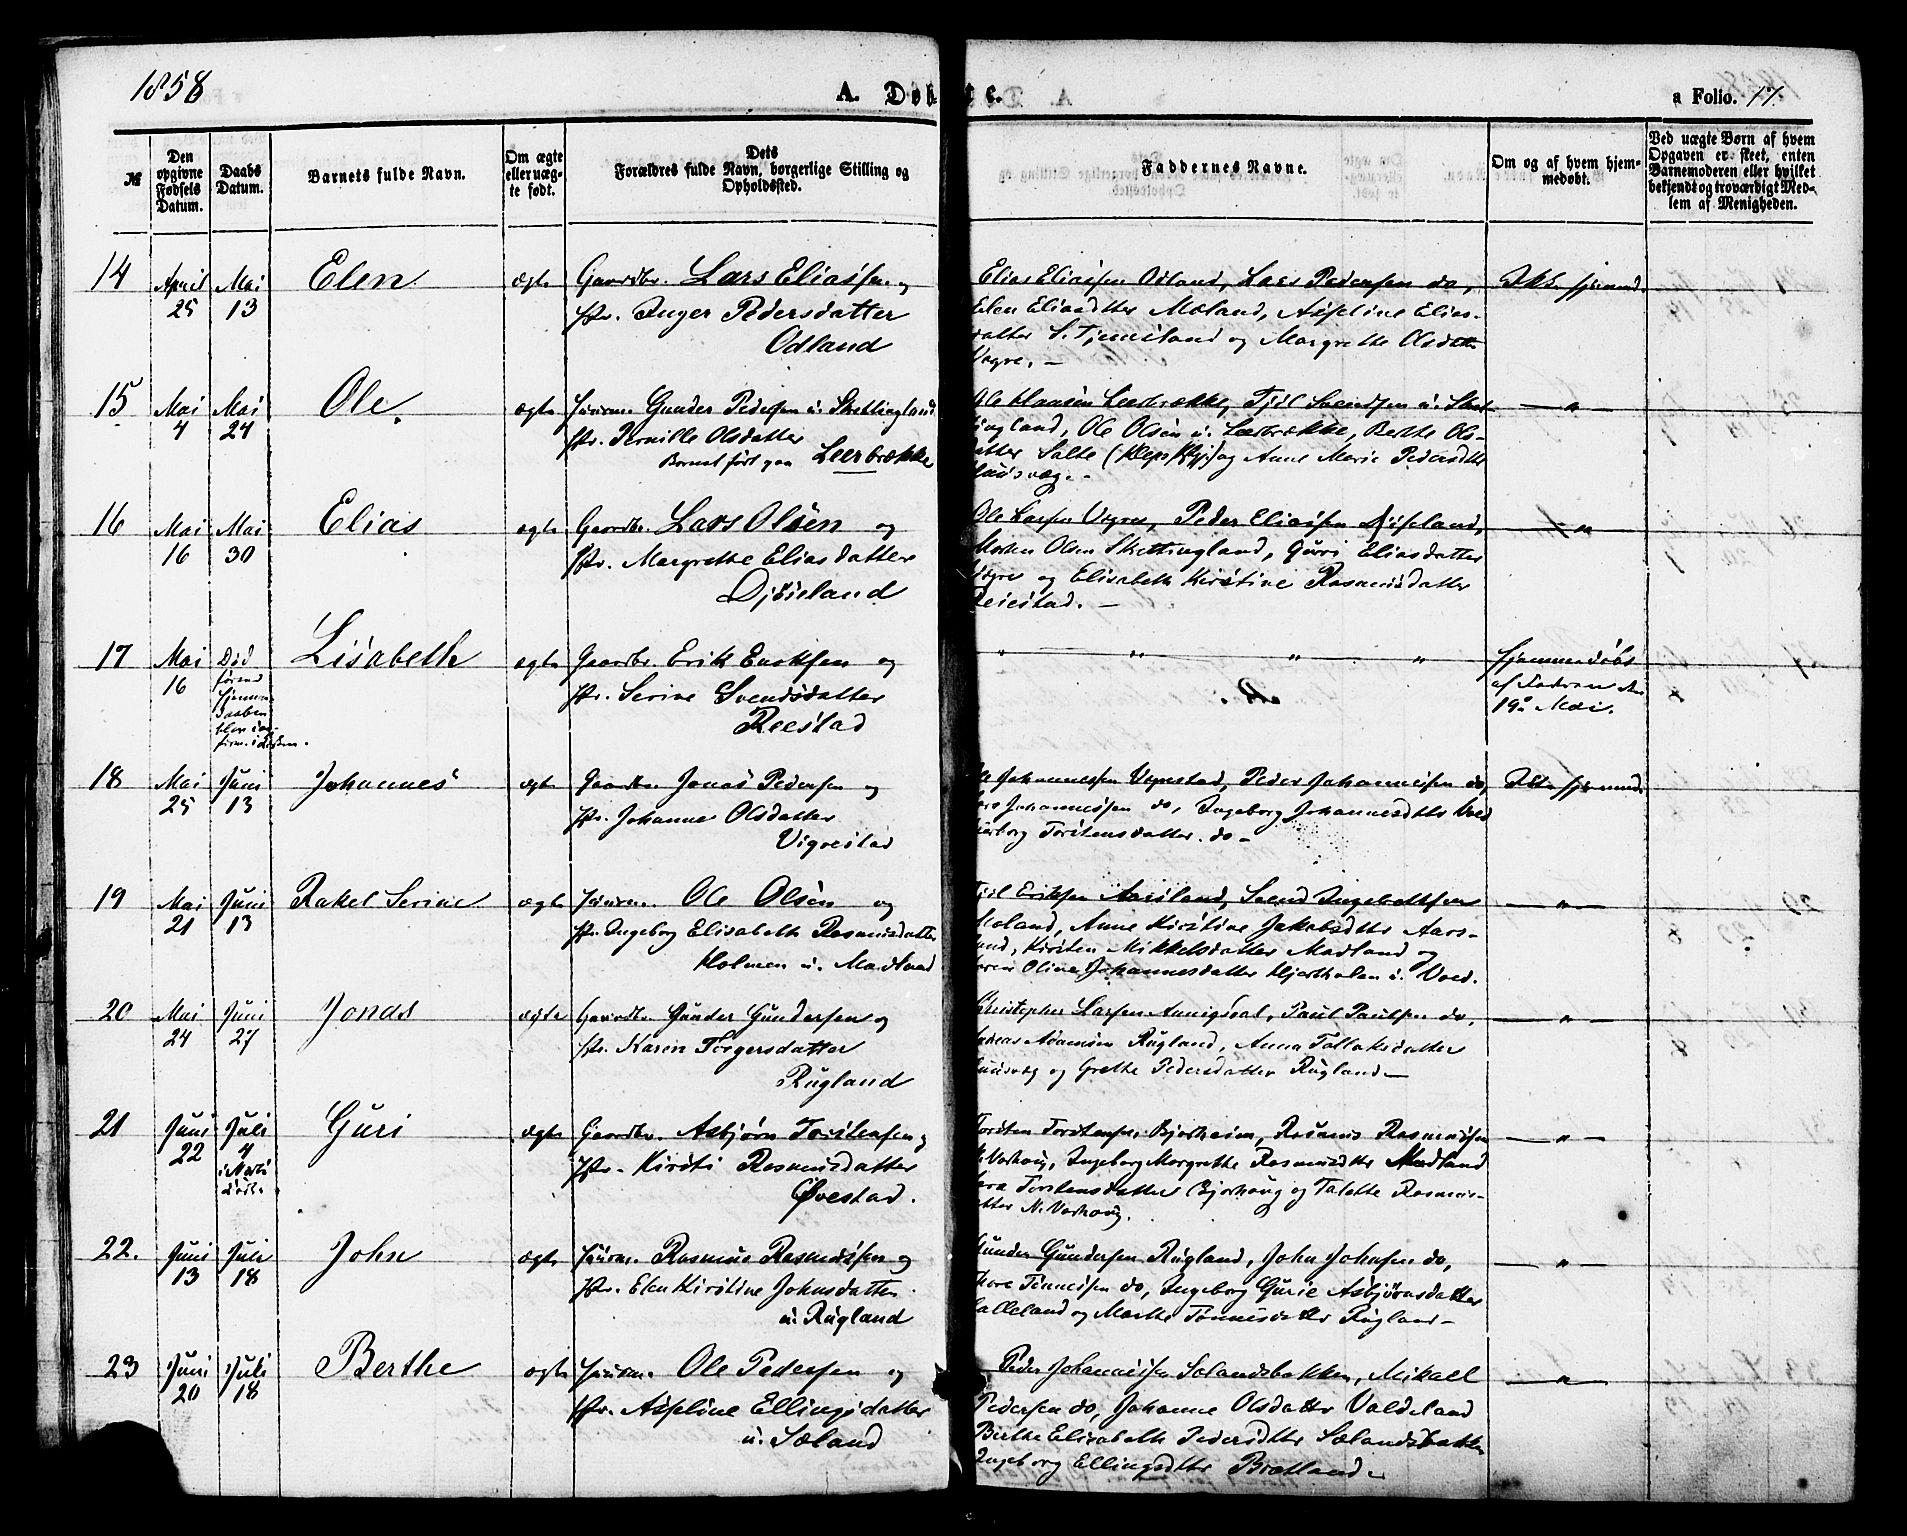 1858
A. Døbte.
a Folio. 17
№
Den opgivne Fødsels Datum.
Daabs Datum.
Barnets fulde Navn.
Om ægte eller uægte født.
Dets Forældres fulde Navn, borgerlige Stilling og Opholdssted.
Faddernes Navne.
Om og af hvem hjemmedøbt.
Ved uægte Børn af hvem Opgaven er skeet, enten Barnemoderen eller hvilket bekjendt og troværdigt Medlem af Menigheden.
14 April 25 Mai 13 Elen ægte Gaardbr. Lars Eliassen og
Hst. Inger Pedersdatter
Odland
Elias Eliassen Odland, Lars Pedersen do,
Elen Eliasdtter Moland, Asseline Elias-
datter S. Tjemsland og Margrethe Olsdatter
Vigre. -
Ikke hjemmd.
15 Mai 4 Mai 24 Ole. ægte Huusm. Gunder Pedersen u. Skettingland
Hst. Pernille Olsdatter
Barnet født paa Leerbrække
Ole Hansen Leerbrække, Tjøl Svendsen u. Sket-
tingland, Ole Olsen u. Leerbrække, Berthe Ols-
datter Salte (Klep Pgj.) og Anne Marie Pedersdtter
"
16 Mai 16 Mai 30 Elias ægte Gaardbr. Lars Olsen og
Hst. Margrethe Eliasdatter
Djøsieland
Ole Larsen Vigre, Peder Eliassen
Morten Olsen Skettingland, Guri Eliasdatter
Vigre og Elisabeth Kirstine Rasmusdatter
Reiestad. -
"
17 Mai 16 Død førend Hjemmedaaben blev i Kirken. Lisabeth ægte Gaardbr. Erik Eriksen og
Hst. Serine Svendsdatter
Reestad
" " " "
Hjemmedøbt
af Faderen den
19de Mai.
18 Mai 25 Juni 13 Johannes ægte Gaardbr. Jonas Pedersen og
Hst. Johanne Olsdatter
Vigrestad
Johannessen Vigrestad, Peder Johannessen do,
Lars Johannessen do, Ingeborg Johannesdtter Vold
Torstensdatter do -
Ikke hjemmd.
19 Mai 21 Juni 13 Rakel Serine ægte Huusm. Ole Olsen og
Hst. Ingeborg Elisabeth Rasmusdatter
Holmen u. Madland
Tjøl Eriksen Aarsland, Svend Ingebretsen
Moland, Anne Kirstine Jakobsdtter Aars-
land, Kirsten Mikkelsdatter Madland og
Karen Oline Johannesdatter Hjortholen u. Vold.
"
20 Mai 24 Juni 27 Jonas ægte Gaardbr. Gunder Gundersen og
Hst. Karen Torgersdatter
Rugland
Christopher Larsen Aunigsdal, Paul Paulsen do,
Andreas Adamsen Rugland, Anna Tollaksdatter
og Grethe Pedersdatter Rugland -
"
21 Juni 22 Juli 4 Guri ægte Gaardbr. Asbjørn Torstensen og
Hst. Kirsti Rasmusdatter
Øvestad.
Torsten Torstensen Bjorheim, Rasmus Rasmussen
N. Varhoug, Ingeborg Margrethe Rasmusdtter Madland
Torstensdatter Bjorhoug og Talette Rasmus-
datter N. Varhoug.
"
22. Juni 13 Juli 18 John ægte Huusm. Rasmus Rasmussen og
Hst. Elen Kirstine Johnsdatter
u. Rugland
Gunder Gundersen Rugland, John Johnsen do,
Thore Tønnessen do, Ingeborg Gurie Asbjørnsdatter
og Marthe Tønnesdatter Rugland -
"
23 Juni 20 Juli 18 Berthe ægte Huusm. Ole Pedersen og
Hst. Asseline Ellingsdatter
u. Sæland
Peder Johannessen Sælandsbakken, Mikael
Pedersen do, Johanne Olsdatter Valdeland
Birthe Elisabeth Pedersdtter Sælandsbakken
Ingeborg Ellingsdtter Brætland -
"